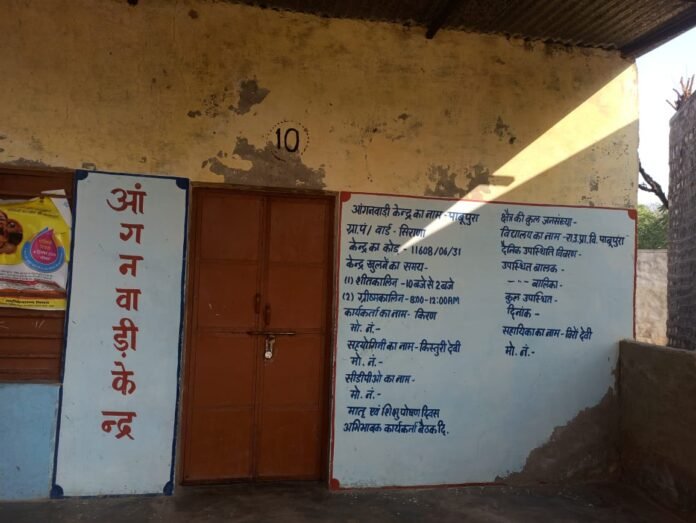 10
आंगनवाड़ी केन्द्र
आंगनवाड़ी केन्द्र का नाम - पाबूपुरा
ग्रा.पं/ वार्ड - सिराणा
केन्द्र का कोड - 11608/06/31
केन्द्र खुलने का समय -
(1) शीतकालिन - 10 बजे से 2 बजे
(2) ग्रीष्मकालिन - 8:00 - 12:00 AM
कार्यकर्ता का नाम - किरण
मो. नं. -
सहयोगिनी का नाम - किस्तुरी देवी
मो. नं. -
सीडीपीओ का नाम -
मो. नं. -
मातृ एवं शिशु पोषण दिवस
अभिभावक कार्यकर्ता बैठक दि.
क्षैत्र की कुल जनसंख्या -
विद्यालय का नाम - रा.उ.प्रा.वि. पाबूपुरा
दैनिक उपस्थिति विवरण -
उपस्थित बालक -
- - - बालिका -
कुल उपस्थित -
दिनांक -
सहायिका का नाम - देवी
मो. नं. -